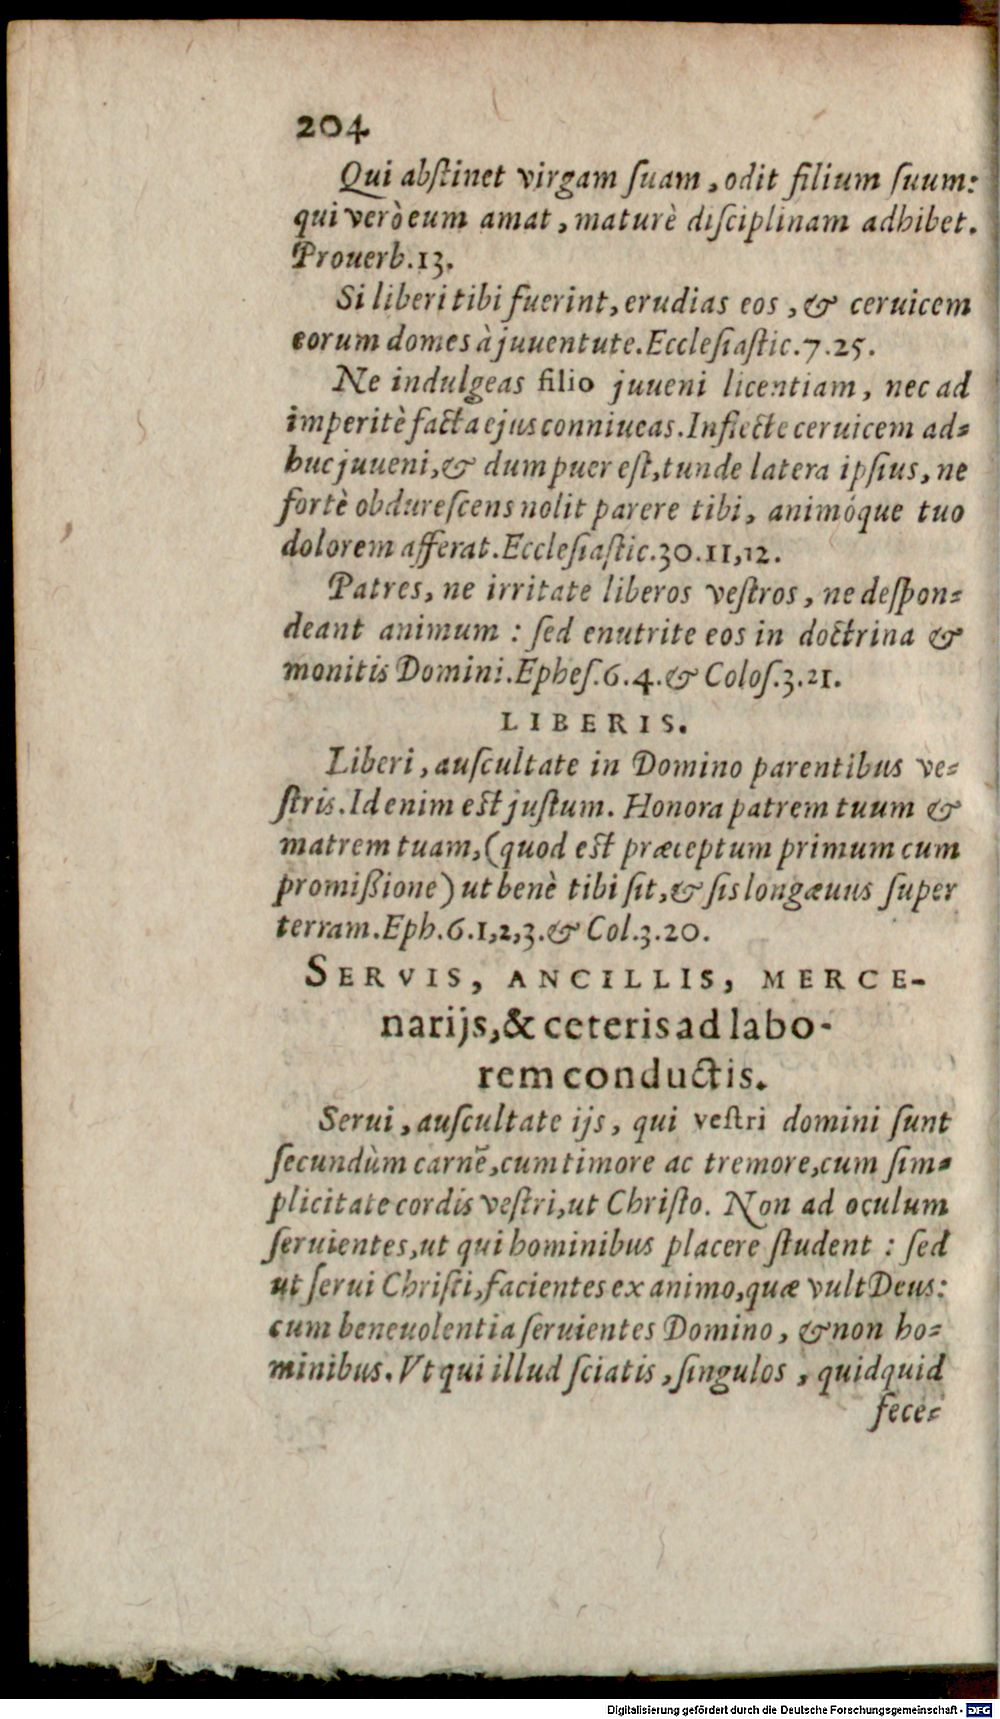 204
Qui abſtinet virgam ſuam, odit filium ſuum:
qui verò eum amat, maturè diſciplinam adhibet.
Prouerb. 13.
Si liberi tibi fuerint, erudias eos, & ceruicem
eorum domes à juuentute. Eccleſiaſtic. 7. 25.
Ne indulgeas filio juueni licentiam, nec ad
imperitè facta ejus conniueas. Inflecte ceruicem ad-
huc juueni, & dum puer eſt, tunde latera ipſius, ne
fortè obdureſcens nolit parere tibi, animóque tuo
dolorem afferat. Eccleſiaſtic. 30. 11, 12.
Patres, ne irritate liberos veſtros, ne deſpon-
deant animum : ſed enutrite eos in doctrina &
monitis Domini. Epheſ. 6. 4. & Coloſ. 3. 21.
LIBERIS.
Liberi, auſcultate in Domino parentibus ve-
ſtris. Id enim eſt juſtum. Honora patrem tuum &
matrem tuam, (quod eſt præceptum primum cum
promißione) ut benè tibi ſit, & ſis longæuus ſuper
terram. Eph. 6. 1, 2, 3. & Col. 3. 20.
SERVIS, ANCILLIS, MERCE-
narijs, & ceteris ad labo-
rem conductis.
Serui, auſcultate ijs, qui veſtri domini ſunt
ſecundùm carnē, cum timore ac tremore, cum ſim-
plicitate cordis veſtri, ut Chriſto. Non ad oculum
ſeruientes, ut qui hominibus placere ſtudent : ſed
ut ſerui Chriſti, facientes ex animo, quæ vult Deus:
cum beneuolentia ſeruientes Domino, & non ho-
minibus. Vt qui illud ſciatis, ſingulos, quidquid
fece-
Digitalisierung gefördert durch die Deutsche Forschungsgemeinschaft - DFG